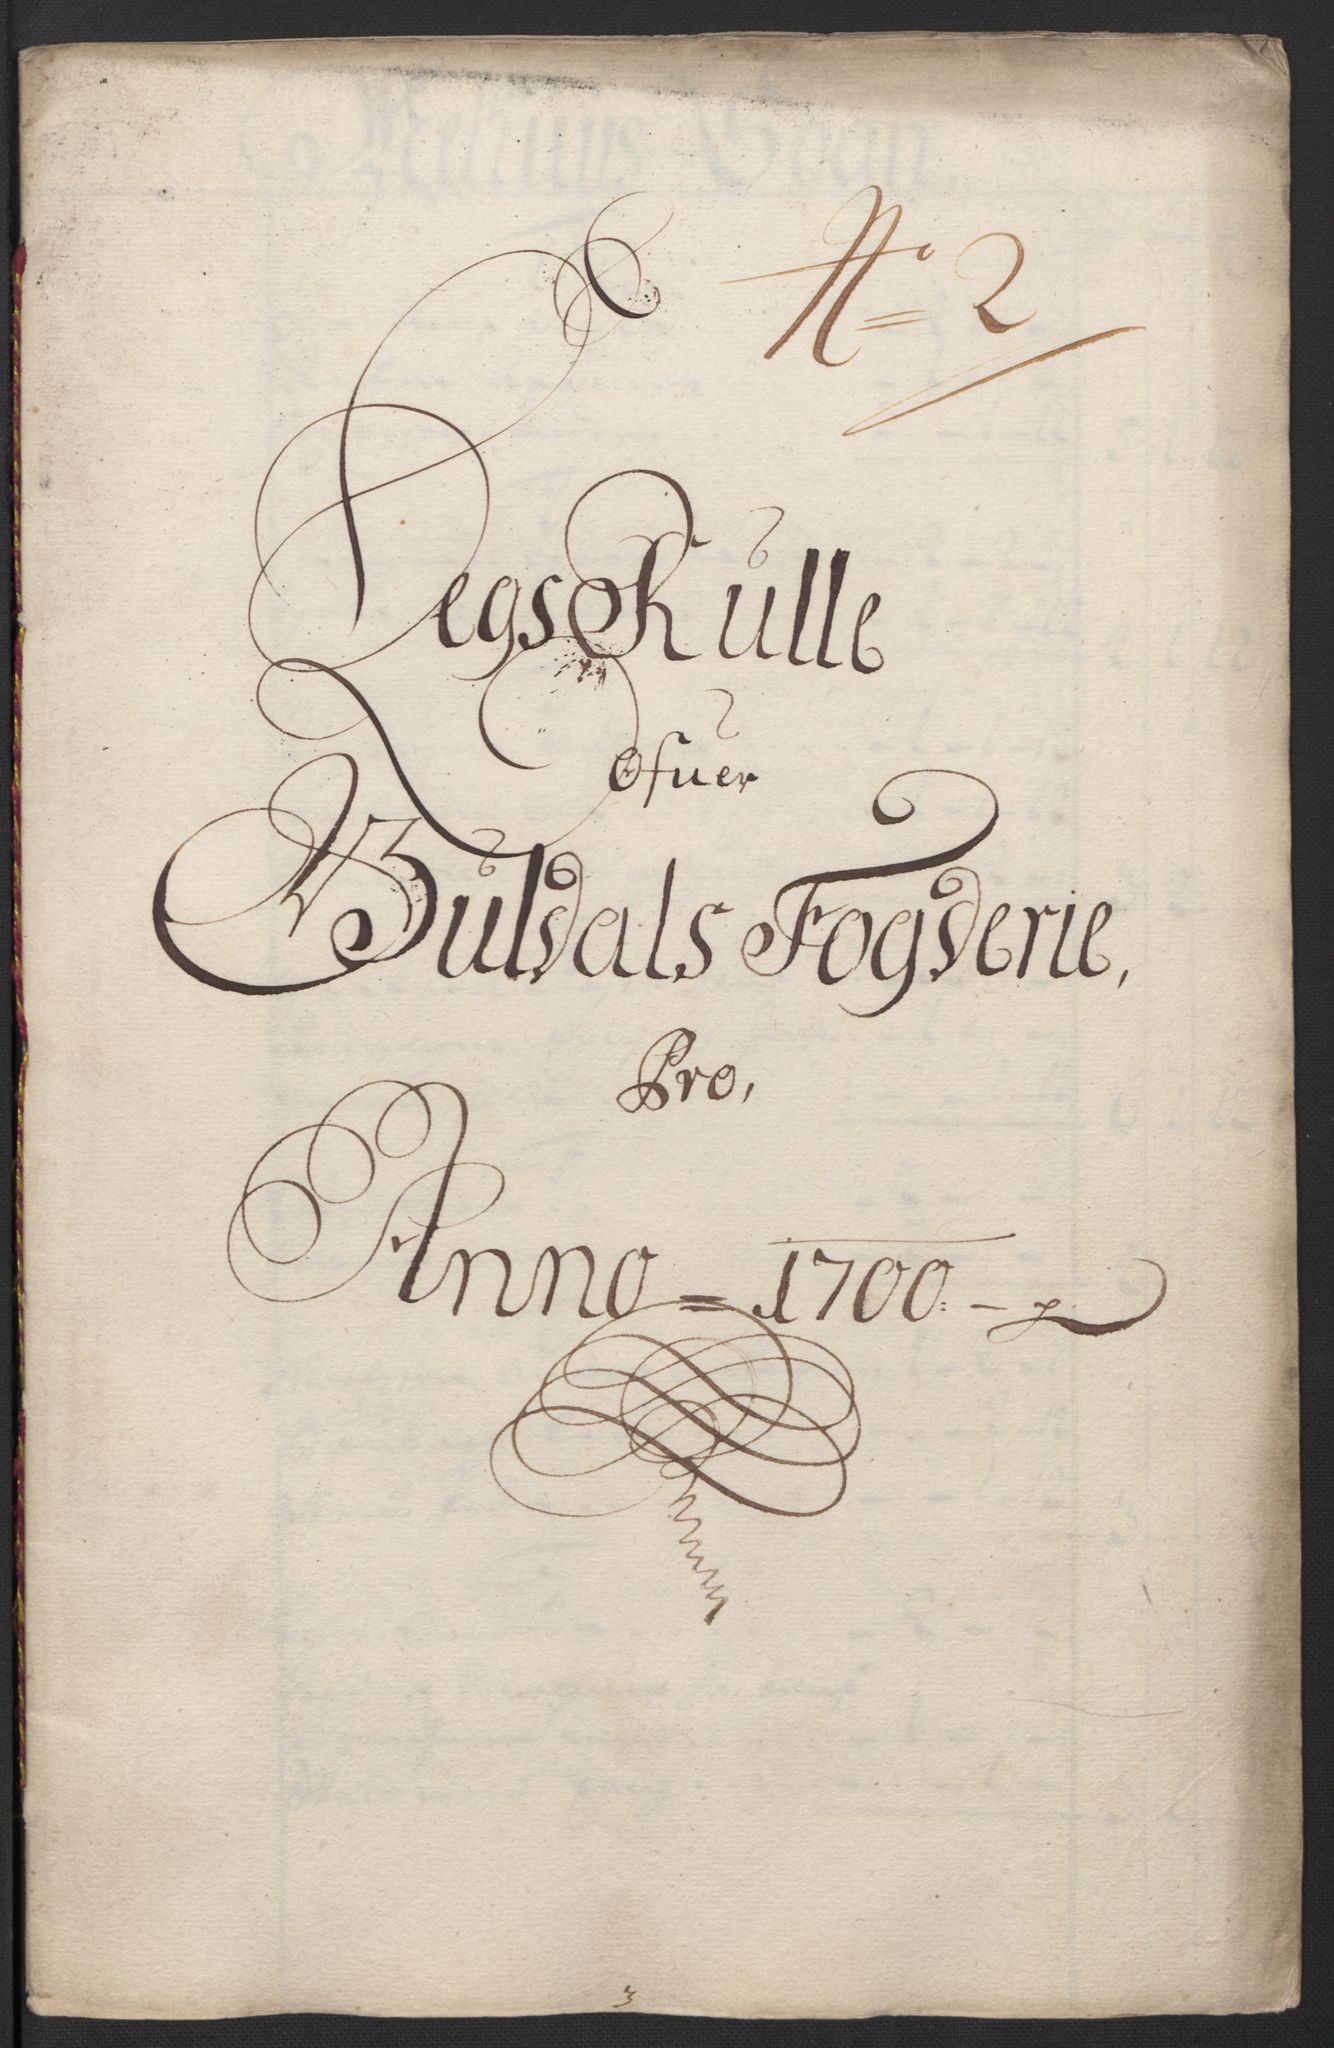 No 2
Legs Rulle
Ofuer
Guldals Fogderie,
Pro,
Anno = 1700. –
3